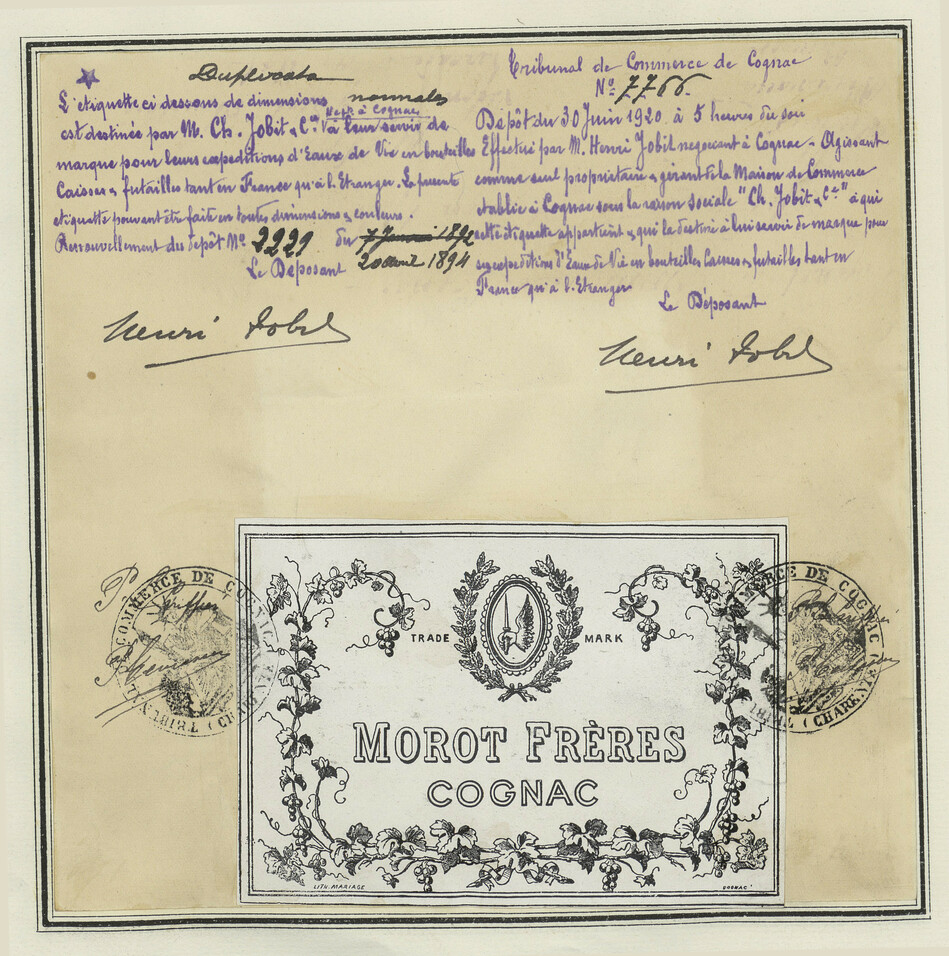 Duplicata
L'etiquette ci dessous de dimensions normales
est destinée par M. Ch. Jobit & Cie Negts à Cognac à leur servir de
marque pour leurs expeditions d'Eaux de Vie en bouteilles
Caisses & futailles tant en France qu'à l'Etranger. La presente
etiquette pouvant être faite en toutes dimensions & couleurs.
Renouvellement du depôt No 2221 du 7 Janvier 1892
20 avril 1894
Le Deposant
Henri Jobit
Tribunal de Commerce de Cognac
No 7766.
Depôt du 30 Juin 1920 à 5 heures du soir
Effectué par M. Henri Jobit negociant à Cognac - Agissant
comme seul propriétaire & gérant de la Maison de Commerce
etablie à Cognac sous la raison sociale "Ch. Jobit & Cie" à qui
cette étiquette appartient & qui la destine à lui servir de marque pour
ses expedition d'Eaux de Vie en bouteilles Caisses & futailles tant en
France qu'à l'Etranger
Le Déposant
Henri Jobit
TRIBUNAL DE COMMERCE DE COGNAC
(CHARENTE)
TRADE MARK
MOROT FRÈRES
COGNAC
LITH. MARIAGE
COGNAC
COMMERCE DE COGNAC
(CHARENTE)